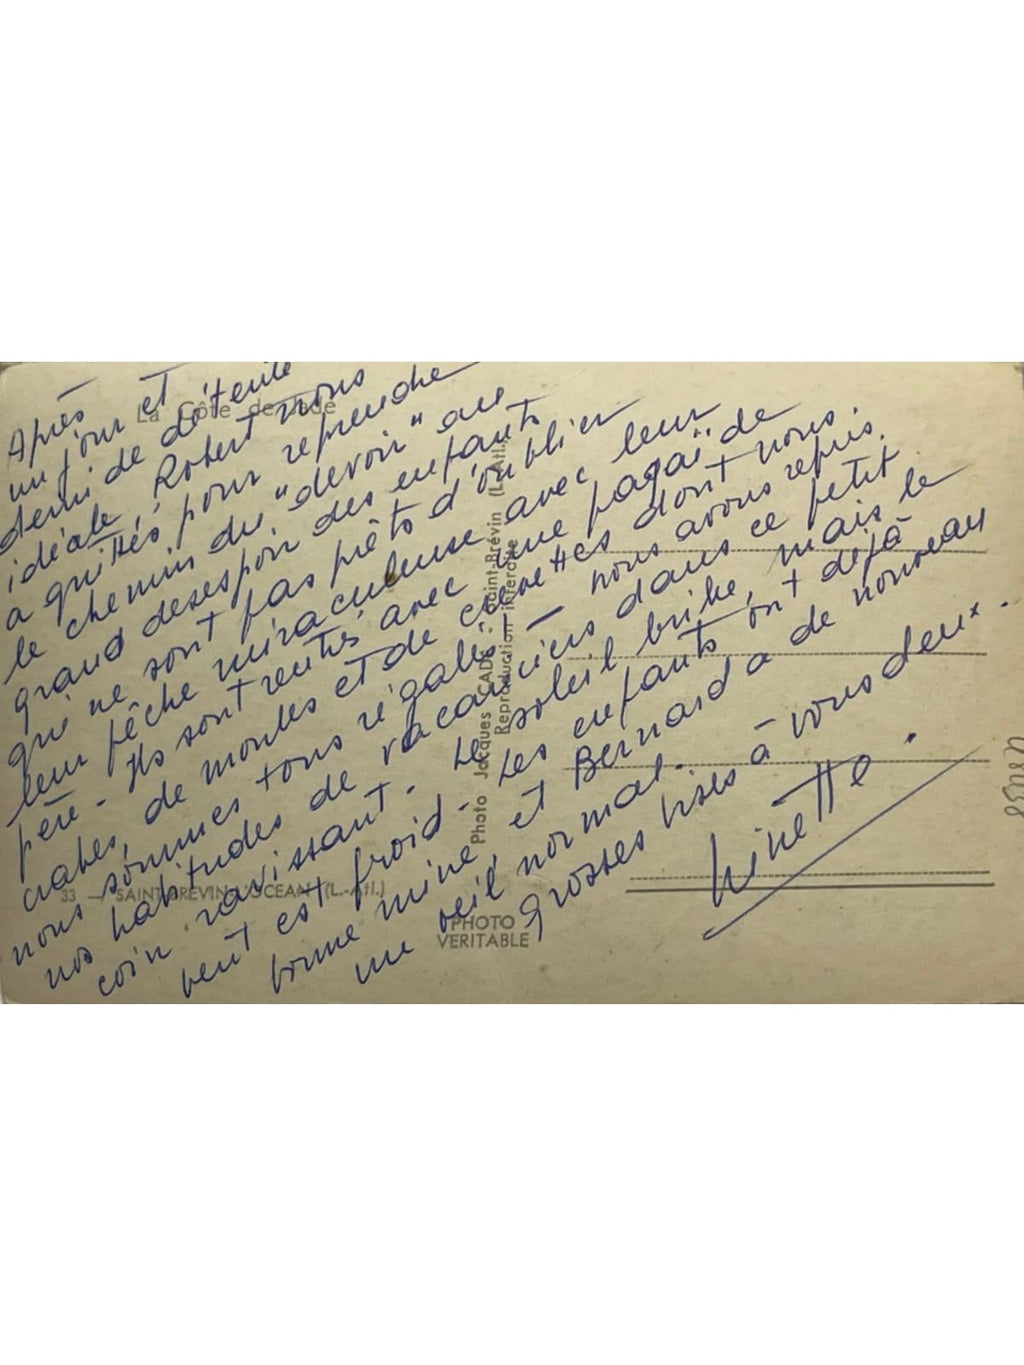 Après
un jour et
demi de détente
idéale, Robert nous
a quittés pour reprendre
le chemin du "devoir" au
grand desespoir des enfants
qui ne sont pas prêts d'oublier
leur pêche miraculeuse avec leur
père - Ils sont rentrés avec une pagaï de
crabes, de moules et de crevettes dont nous
nous sommes tous régalés - nous avons repris
nos habitudes de vacanciers dans ce petit
coin ravissant. Le soleil brille, mais le
vent est froid - Les enfants ont déjà
bonne mine, et Bernard a de nouveau
un oeil normal.
Grosses bises à vous deux.
Ninette.
La Côte de Jade
33 - SAINT-BRÉVIN-L'OCÉAN (L.-Atl.)
PHOTO
VERITABLE
Photo Jacques CADE - Saint-Brévin (L.-Atl.)
Reproduction interdite